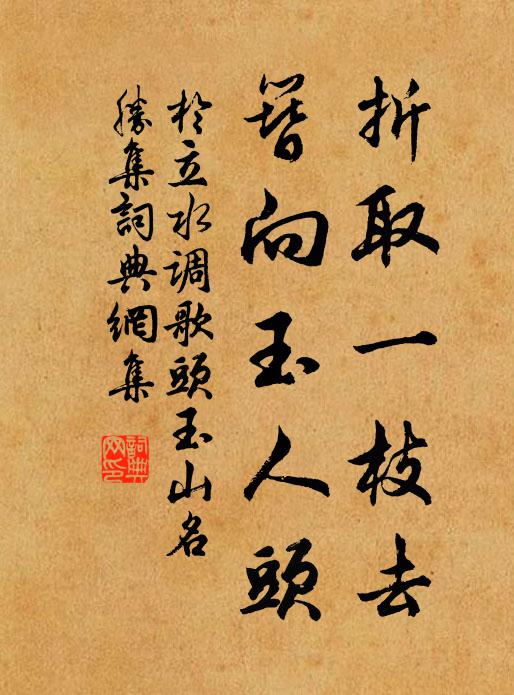 折取一枝去
簪向玉人頭
於立水调歌頭玉山名
勝集詞典網集
詞典網印